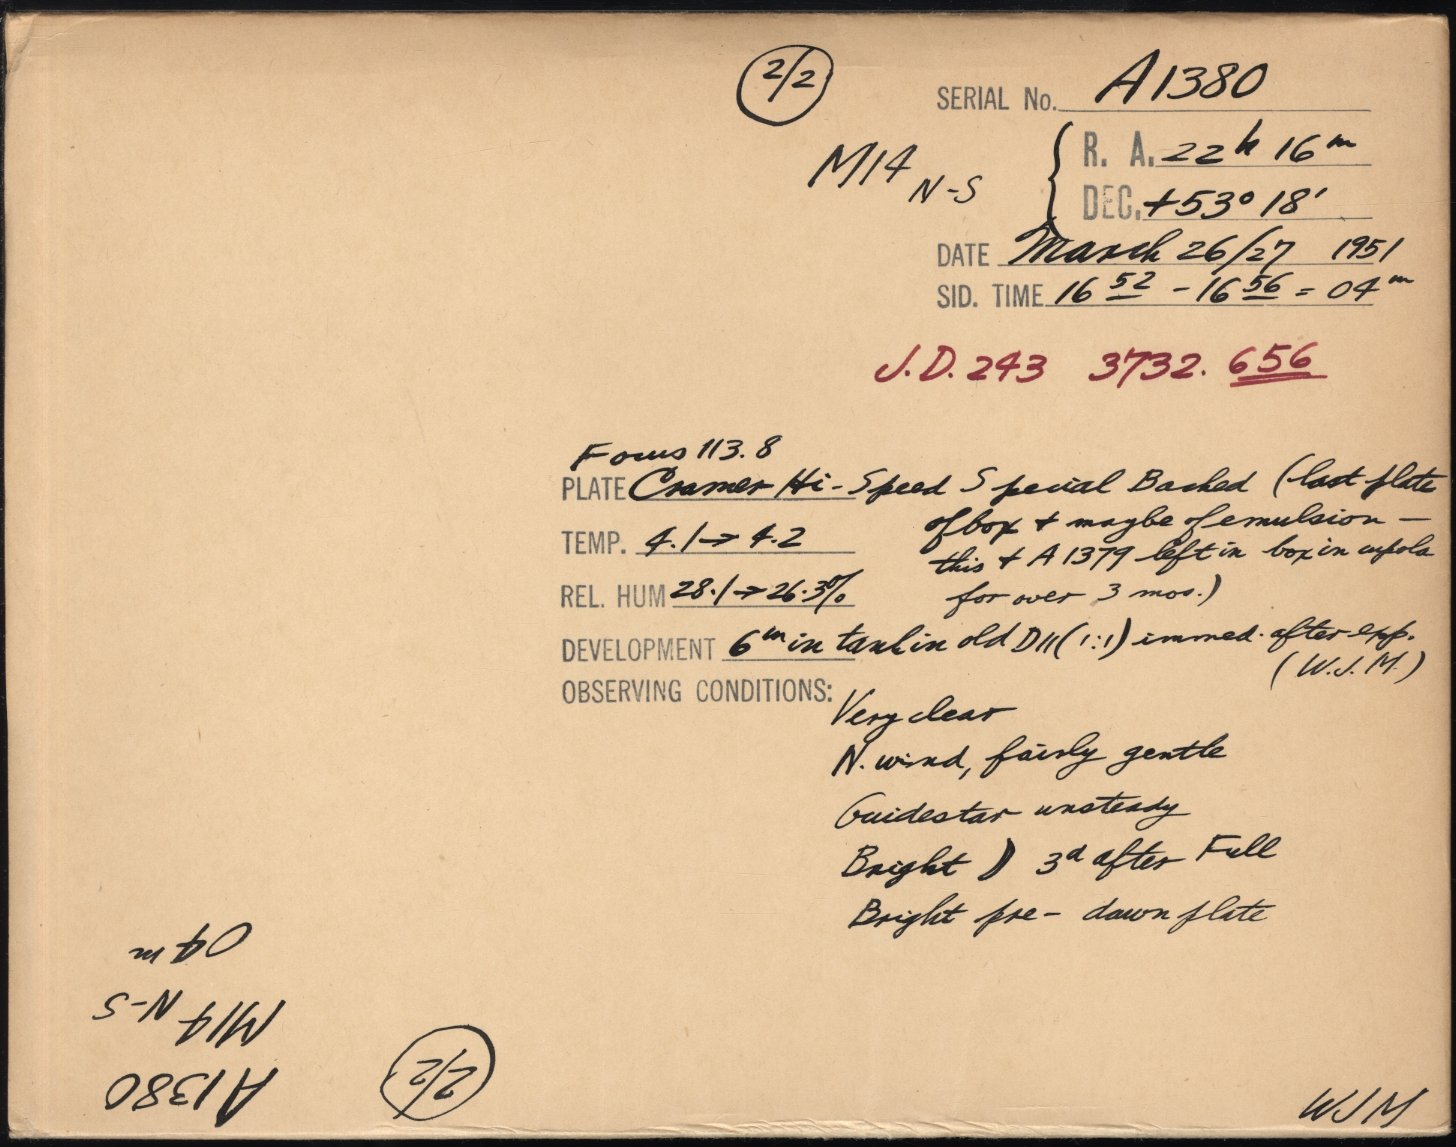 2/2
SERIAL No. A1380
M14 N-S
R. A. 22h 16m
DEC. +53° 18'
DATE March 26/27 1951
SID. TIME 16 52 - 16 56 = 04m
J.D. 243 3732.656
Focus 113.8
PLATE Cramer Hi-Speed Special Backed (last plate
of box & maybe of emulsion —
this & A1379 left in box in cupola
for over 3 mos.)
TEMP. 4.1 → 4.2
REL. HUM 28.1 → 26.3%
DEVELOPMENT 6m in tank in old D11 (1:1) immed. after exp.
(W.J.M.)
OBSERVING CONDITIONS:
Very clear
N. wind, fairly gentle
Guidestar unsteady
Bright ☽ 3d after Full
Bright pre-dawn plate
WJM
2/2
A1380
M14 N-S
04m